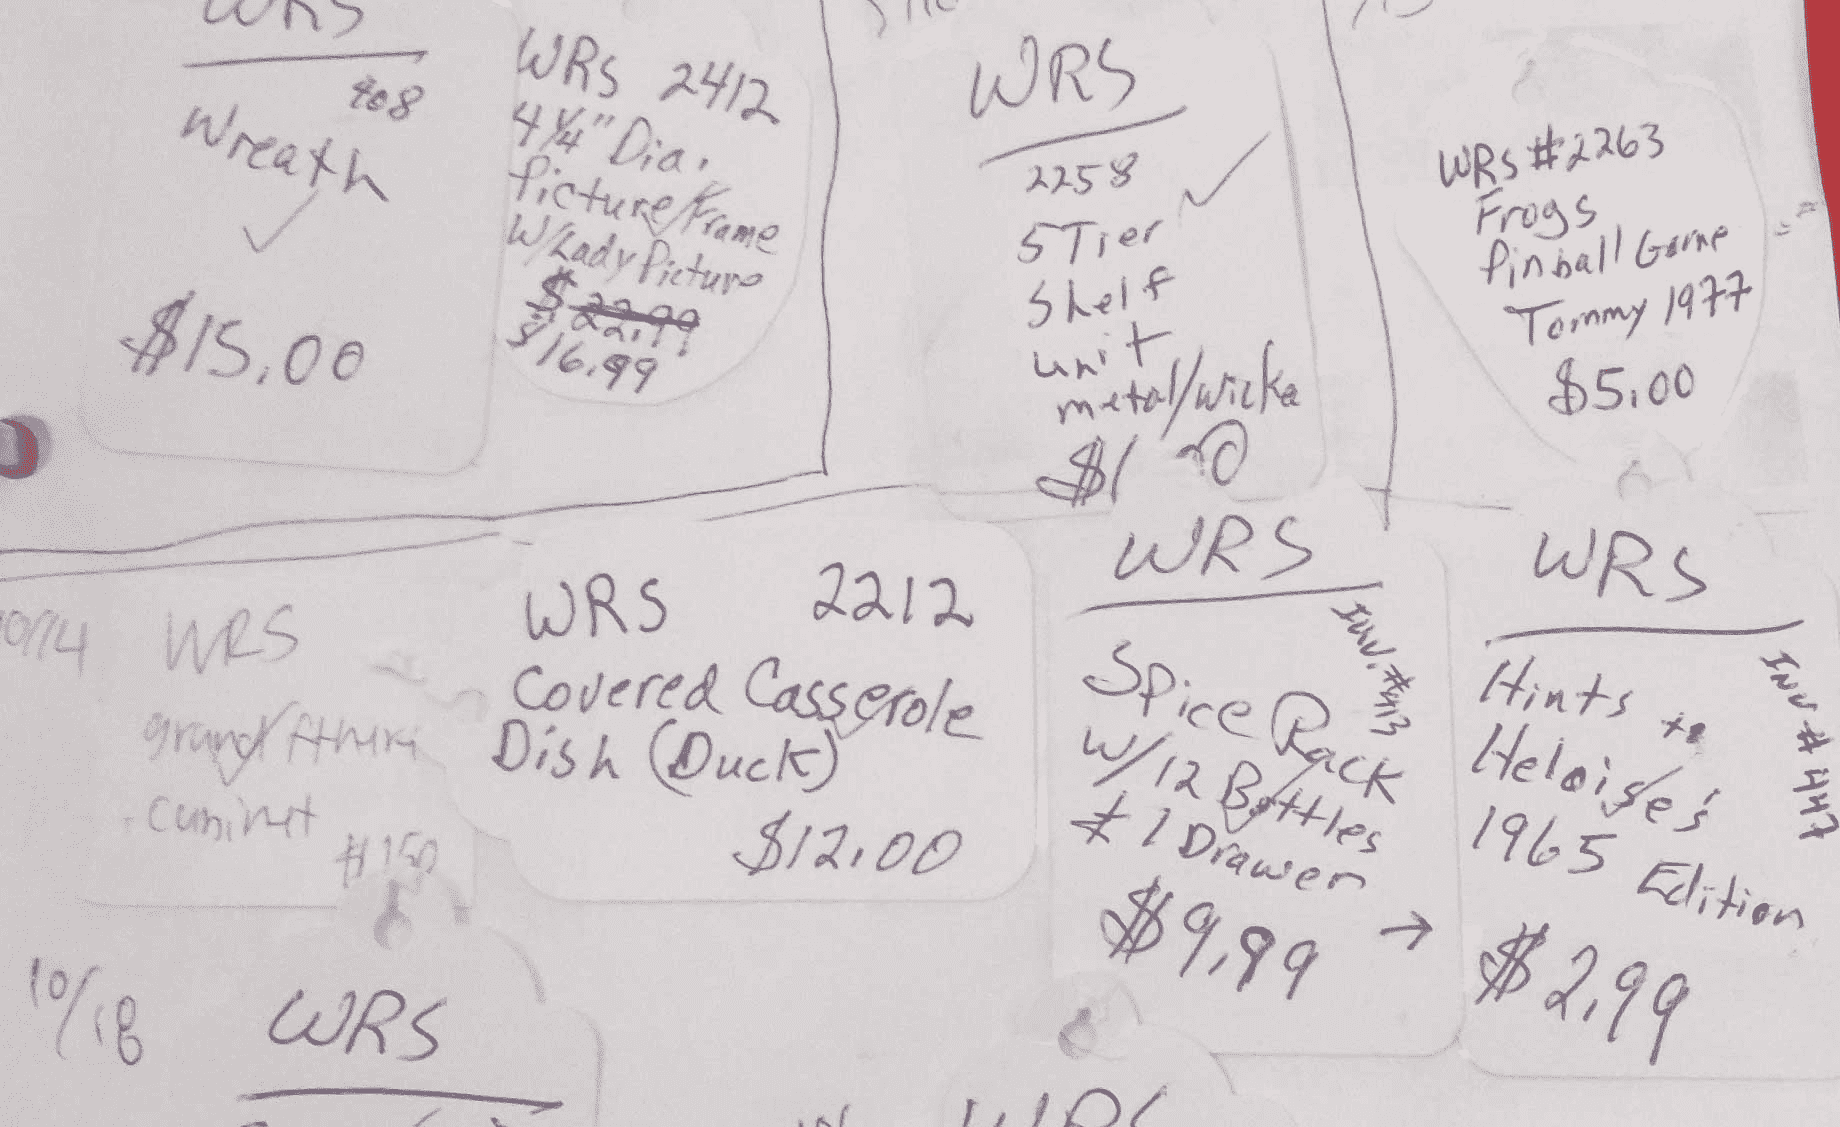 WRS
408
Wreath
$15.00
WRS 2412
4 1/4" Dia.
Picture/Frame
W/Lady Picture
$22.99
$16.99
WRS
2258
5 Tier
Shelf
unit
metal/wicka
WRS #2263
Frogs
Pinball Game
Tommy 1977
$5.00
10/14
WRS
cuninet
WRS 2212
Covered Casserole
Dish (Duck)
$12.00
WRS
Inv. #413
Spice Rack
W/12 Bottles
& 1 Drawer
$9.99 →
WRS
Inv # 447
Hints to
Heloise's
1965 Edition
$2.99
10/18
WRS
WRS